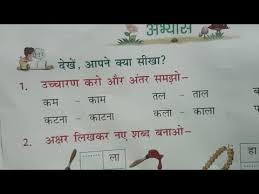 अभ्यास
देखें, आपने क्या सीखा?
1. उच्चारण करो और अंतर समझो–
कम – काम तल – ताल
कटना – काटना कला – काला
2. अक्षर लिखकर नए शब्द बनाओ–
ला हा